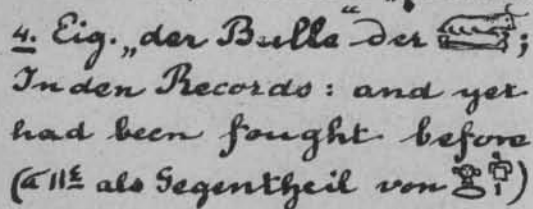 4. Eig. „der Bulle“ der ;
In den Records: and yet
had been fought before
(a 11 als Gegentheil von )